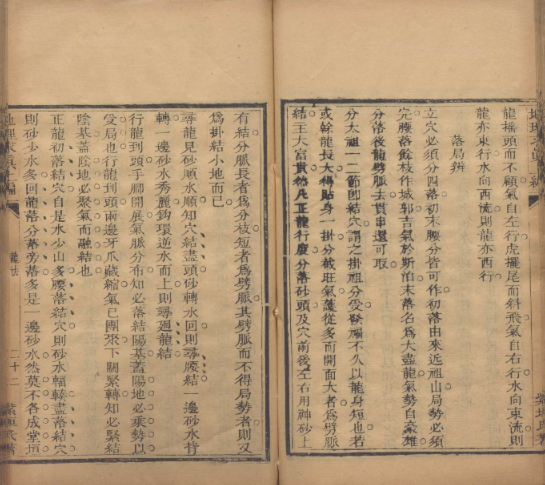 龍搖頭而不顧氣自左行虎擺尾而斜飛氣自右行水向東流則
龍亦東行水向西流則龍亦西行
落局辨
立穴必須分四落初末腰分皆可作初落由來近祖山局勢必須
完腰落餘枝作城郭吉氣於斯泊末落名為大盡龍氣勢自豪雄
分落後龍劈脈去貫串還可取
分太祖一二節卽結穴謂之掛祖分受氣不久以龍身短也若
或幹龍長大得貼身一掛分鉞旺氣護從多而開面大者為劈脈
結主大富貴然凡正龍行度分落砂頭及穴前後左右用神砂上
有結分脈長者為分枝短者為劈脈其劈脈而不得局勢者則又
為掛結小地而已
尋龍見砂順水順知穴結盡頭砂轉水回則尋腰結一邊砂水特
轉一邊砂水秀麗鈎環逆水而上則尋廻龍結
行龍到頭手腳開展氣脈分布知必落結陽基蓋陽地必乘勢以
受局也行龍到頭兩邊牙爪藏縮氣已團聚下關緊轉知必緊結
陰基蓋陰地必聚氣而融結也
正龍初落結穴自是水少山多腰落結穴則砂水輻轉盡落結穴
則砂少水多回龍落分落旁落多是一邊砂水然莫不各成堂垣
二十二